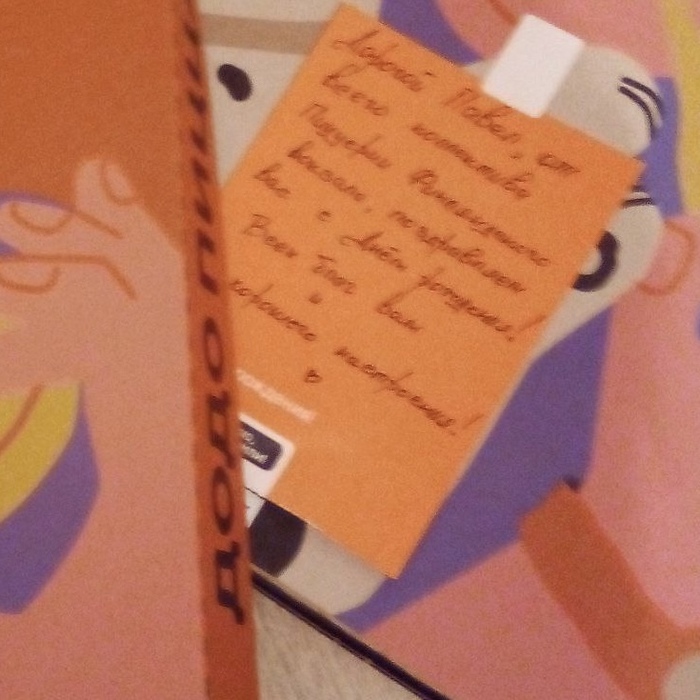 Дорогой Павел, от
всего коллектива
Пиццерии Финляндского
вокзала, поздравляем
вас с Днём рождения!
Всех благ вам
и
хорошего настроения!
ДОДО ПИЦЦ